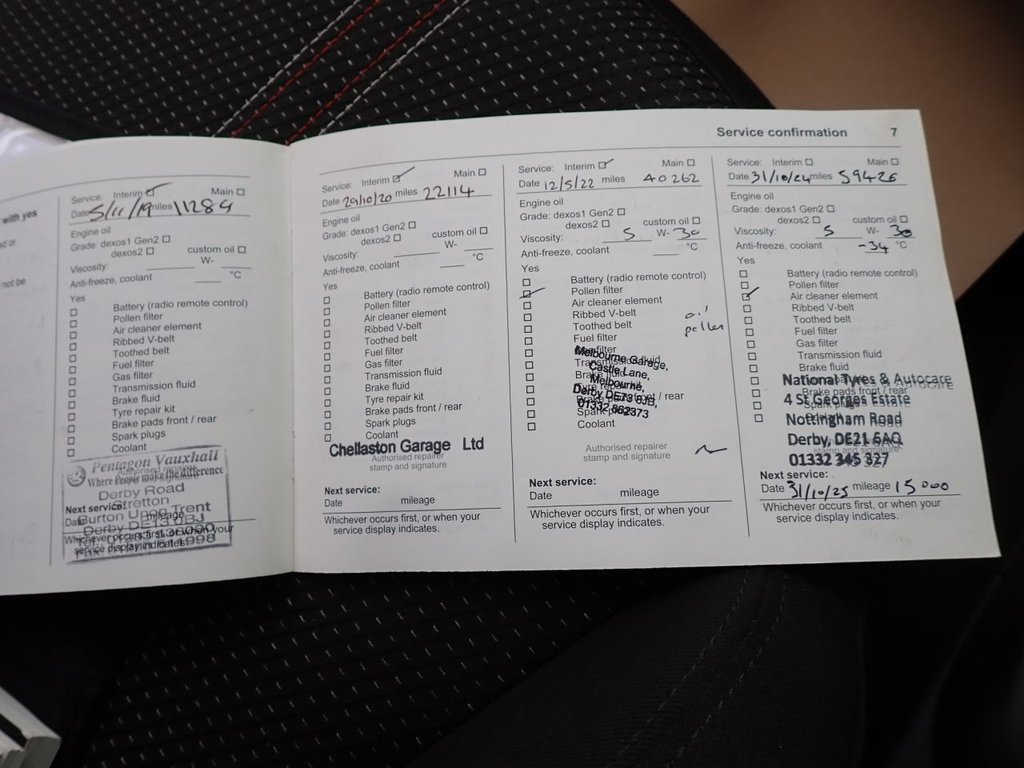 Service confirmation 7
with yes
not be
Service: Interim Main
Date 5/11/19 miles 11284
Engine oil
Grade: dexos1 Gen2
dexos2 custom oil
Viscosity: W-
Anti-freeze, coolant °C
Yes
Battery (radio remote control)
Pollen filter
Air cleaner element
Ribbed V-belt
Toothed belt
Fuel filter
Gas filter
Transmission fluid
Brake fluid
Tyre repair kit
Brake pads front / rear
Spark plugs
Coolant
Pentagon Vauxhall
Where People make the difference
Derby Road
Stretton
Burton Upon Trent
Derby DE13 0BJ
Next service:
Date mileage
Whichever occurs first, or when your
service display indicates.
Service: Interim Main
Date 29/10/20 miles 22114
Engine oil
Grade: dexos1 Gen2
dexos2 custom oil
Viscosity: W-
Anti-freeze, coolant °C
Yes
Battery (radio remote control)
Pollen filter
Air cleaner element
Ribbed V-belt
Toothed belt
Fuel filter
Gas filter
Transmission fluid
Brake fluid
Tyre repair kit
Brake pads front / rear
Spark plugs
Coolant
Chellaston Garage Ltd
Authorised repairer
stamp and signature
Next service:
Date mileage
Whichever occurs first, or when your
service display indicates.
Service: Interim Main
Date 12/5/22 miles 40262
Engine oil
Grade: dexos1 Gen2
dexos2 custom oil
Viscosity: 5 W- 30
Anti-freeze, coolant °C
Yes
Battery (radio remote control)
Pollen filter
Air cleaner element
Ribbed V-belt oil
Toothed belt pollen
Fuel filter
Gas filter
Transmission fluid
Melbourne Garage,
Castle Lane,
Melbourne,
Derby DE73 8JS,
01332 862373
Brake pads front / rear
Spark plugs
Coolant
Authorised repairer
stamp and signature
Next service:
Date mileage
Whichever occurs first, or when your
service display indicates.
Service: Interim Main
Date 31/10/24 miles 59426
Engine oil
Grade: dexos1 Gen2
dexos2 custom oil
Viscosity: 5 W- 30
Anti-freeze, coolant -34 °C
Yes
Battery (radio remote control)
Pollen filter
Air cleaner element
Ribbed V-belt
Toothed belt
Fuel filter
Gas filter
Transmission fluid
Brake fluid
National Tyres & Autocare
Brake pads front / rear
4 St Georges Estate
Nottingham Road
Derby, DE21 6AQ
stamp and signature
01332 345 327
Next service:
Date 31/10/25 mileage 15000
Whichever occurs first, or when your
service display indicates.